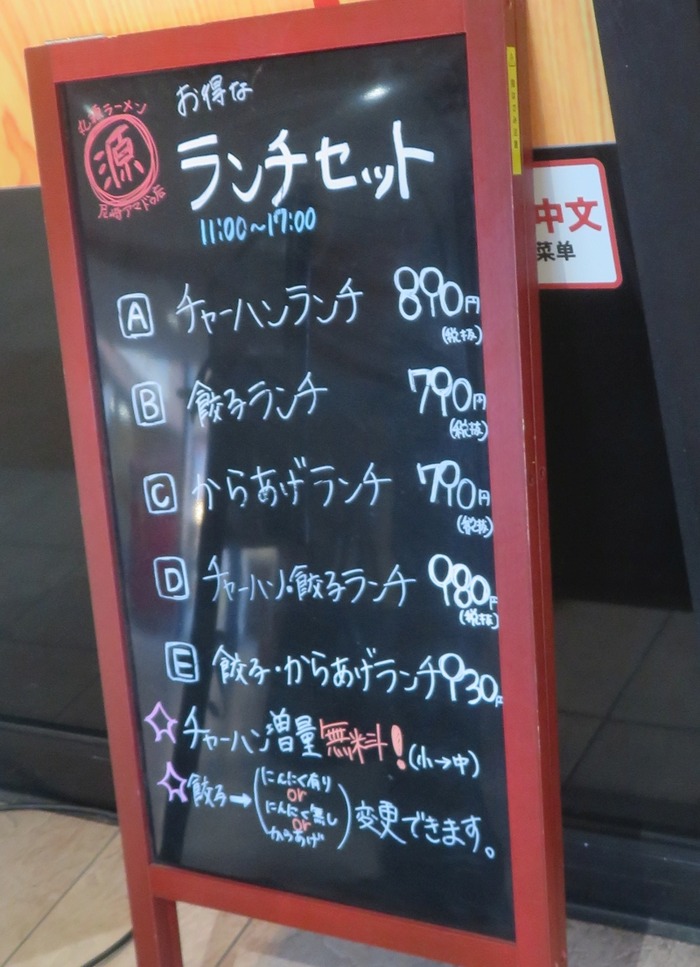 お得な
ラーメン
源
尼崎アマドゥ店
ランチセット
11:00~17:00
A チャーハンランチ 890円
(税抜)
B 餃子ランチ 790円
(税抜)
C からあげランチ 790円
(税抜)
D チャーハン・餃子ランチ 980円
(税抜)
E 餃子・からあげランチ 930円
チャーハン増量無料!(小→中)
餃子→(にんにく有り
or
にんにく無し
or
からあげ)変更できます。
中文
菜单